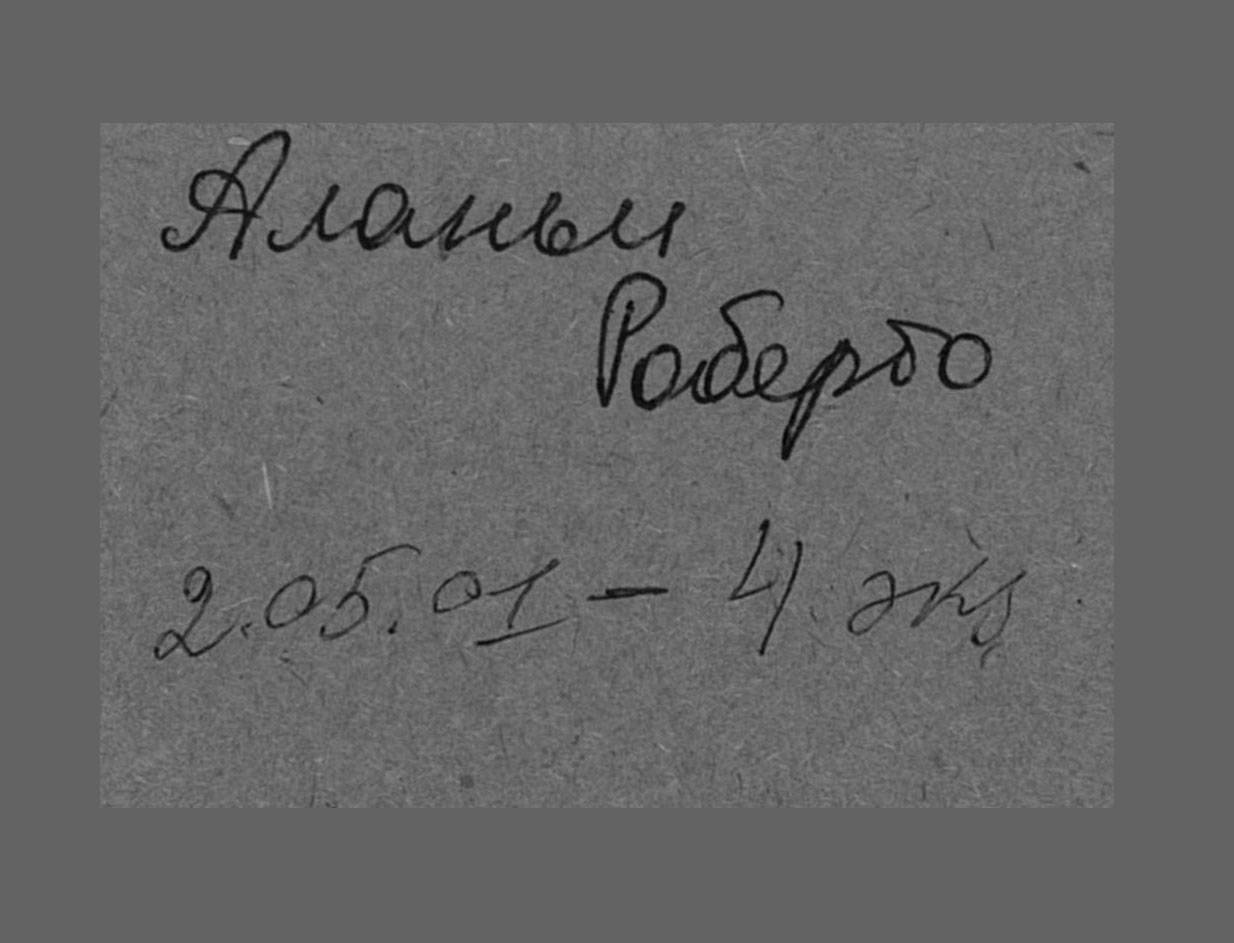 Аланьи
Роберто
2.05.01 – 4 экз